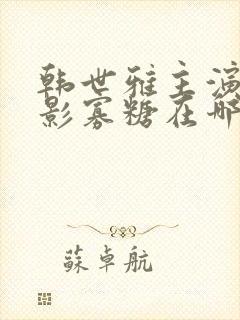 韩世雅主演
影寡糖在哪
蘇卓航